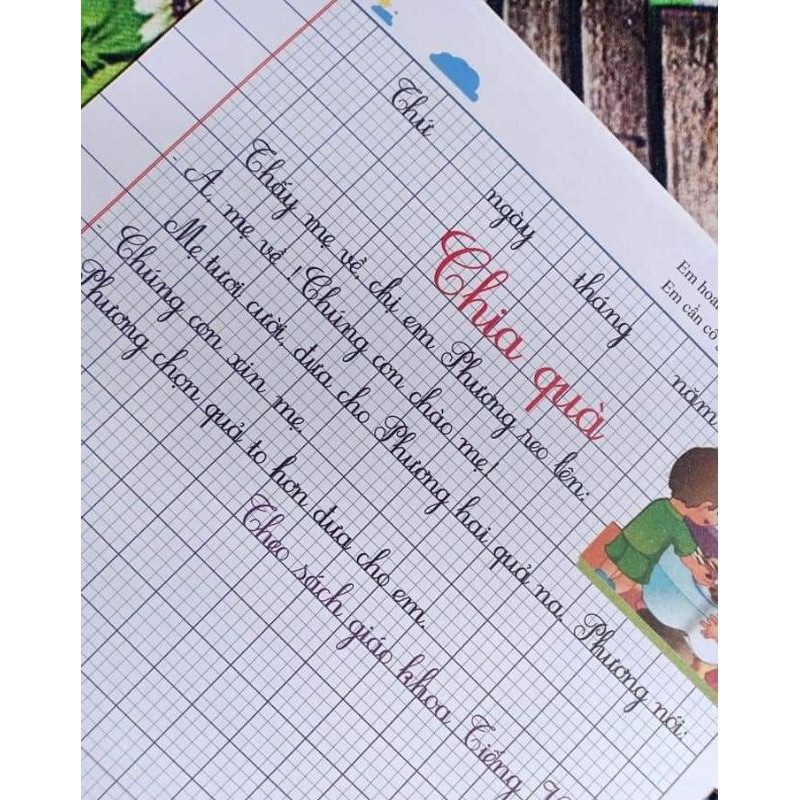 Thứ ngày tháng năm
Em hoàn
Em cần cố
Chia quà
Thấy mẹ về, chị em Phương reo lên:
- A, mẹ về ! Chúng con chào mẹ!
Mẹ tươi cười, đưa cho Phương hai quả na. Phương nói:
- Chúng con xin mẹ.
Phương chọn quả to hơn đưa cho em.
Theo sách giáo khoa Tiếng